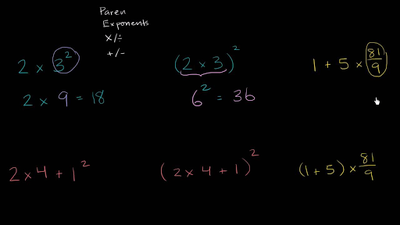 Paren
Exponents
×/÷
+/-
2 × 3²
2 × 9 = 18
(2 × 3)²
6² = 36
1 + 5 × 81/9
2 × 4 + 1²
(2 × 4 + 1)²
(1 + 5) × 81/9